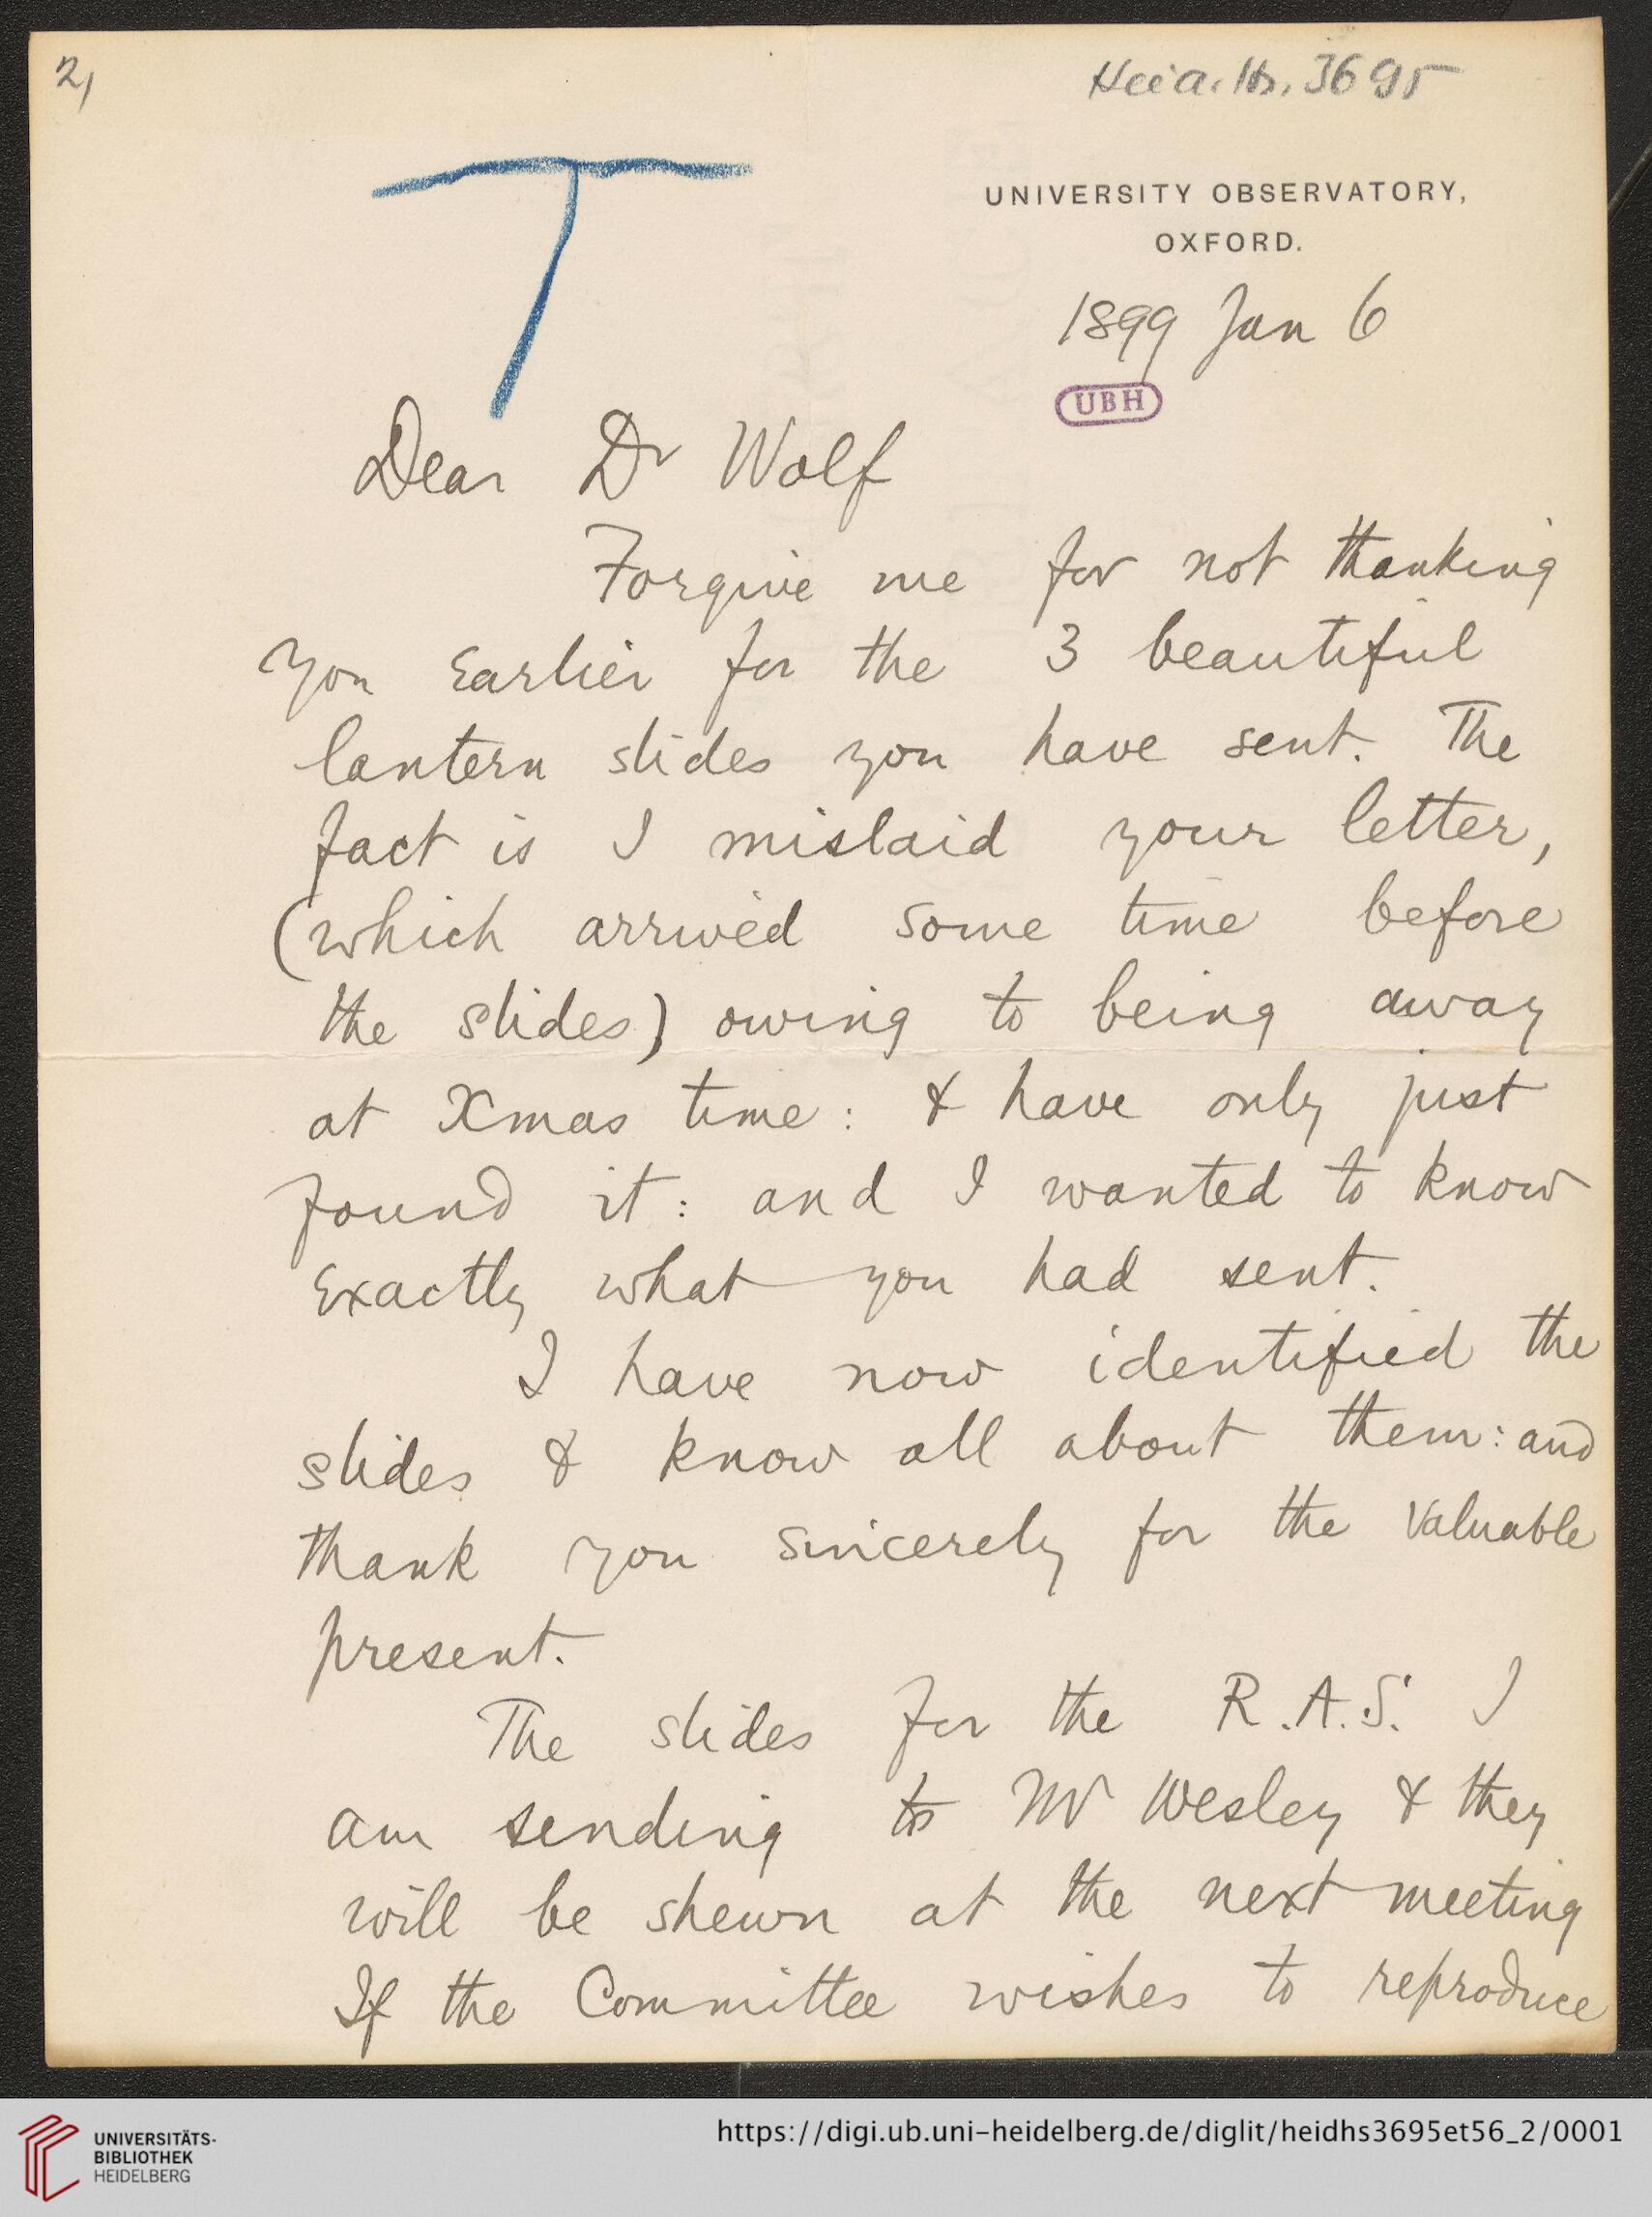 2,
Heid. Hs. 3695
T
UNIVERSITY OBSERVATORY,
OXFORD.
1899 Jan 6
UBH
Dear Dr Wolf
Forgive me for not thanking
you earlier for the 3 beautiful
lantern slides you have sent. The
fact is I mislaid your letter,
(which arrived some time before
the slides) owing to being away
at Xmas time: & have only just
found it: and I wanted to know
exactly what you had sent.
I have now identified the
slides & know all about them: and
thank you sincerely for the valuable
present.
The slides for the R.A.S. I
am sending to Mr Wesley & they
will be shewn at the next meeting
If the Committee wishes to reproduce
UNIVERSITÄTS-
BIBLIOTHEK
HEIDELBERG
https://digi.ub.uni-heidelberg.de/diglit/heidhs3695et56_2/0001